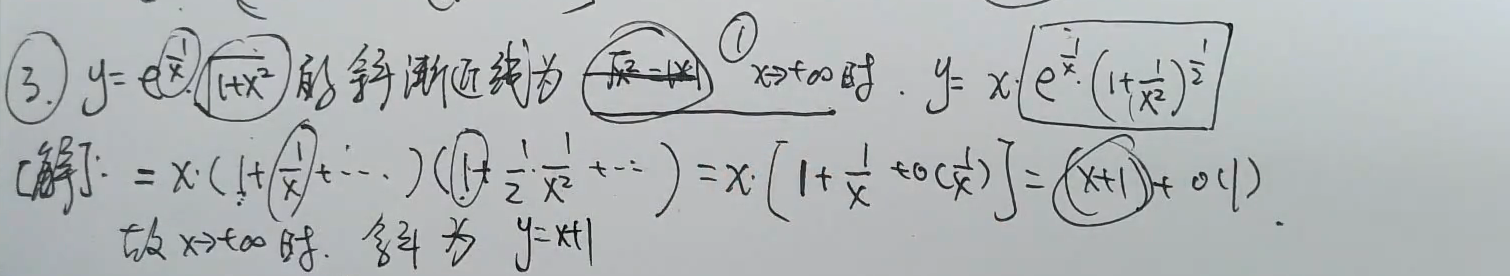 ③. y=e^{\frac{1}{x}}\sqrt{1+x^2} 的斜渐近线为 \sqrt{x^2}=|x| ① x→+∞时. y= x·e^{\frac{1}{x}}·(1+\frac{1}{x^2})^{\frac{1}{2}}
[解]: = x·(1+\frac{1}{x}+⋯)(1+\frac{1}{2}·\frac{1}{x^2}+⋯) = x·[1+\frac{1}{x}+o(\frac{1}{x})] = (x+1)+o(1).
故x→+∞时. 斜为 y=x+1